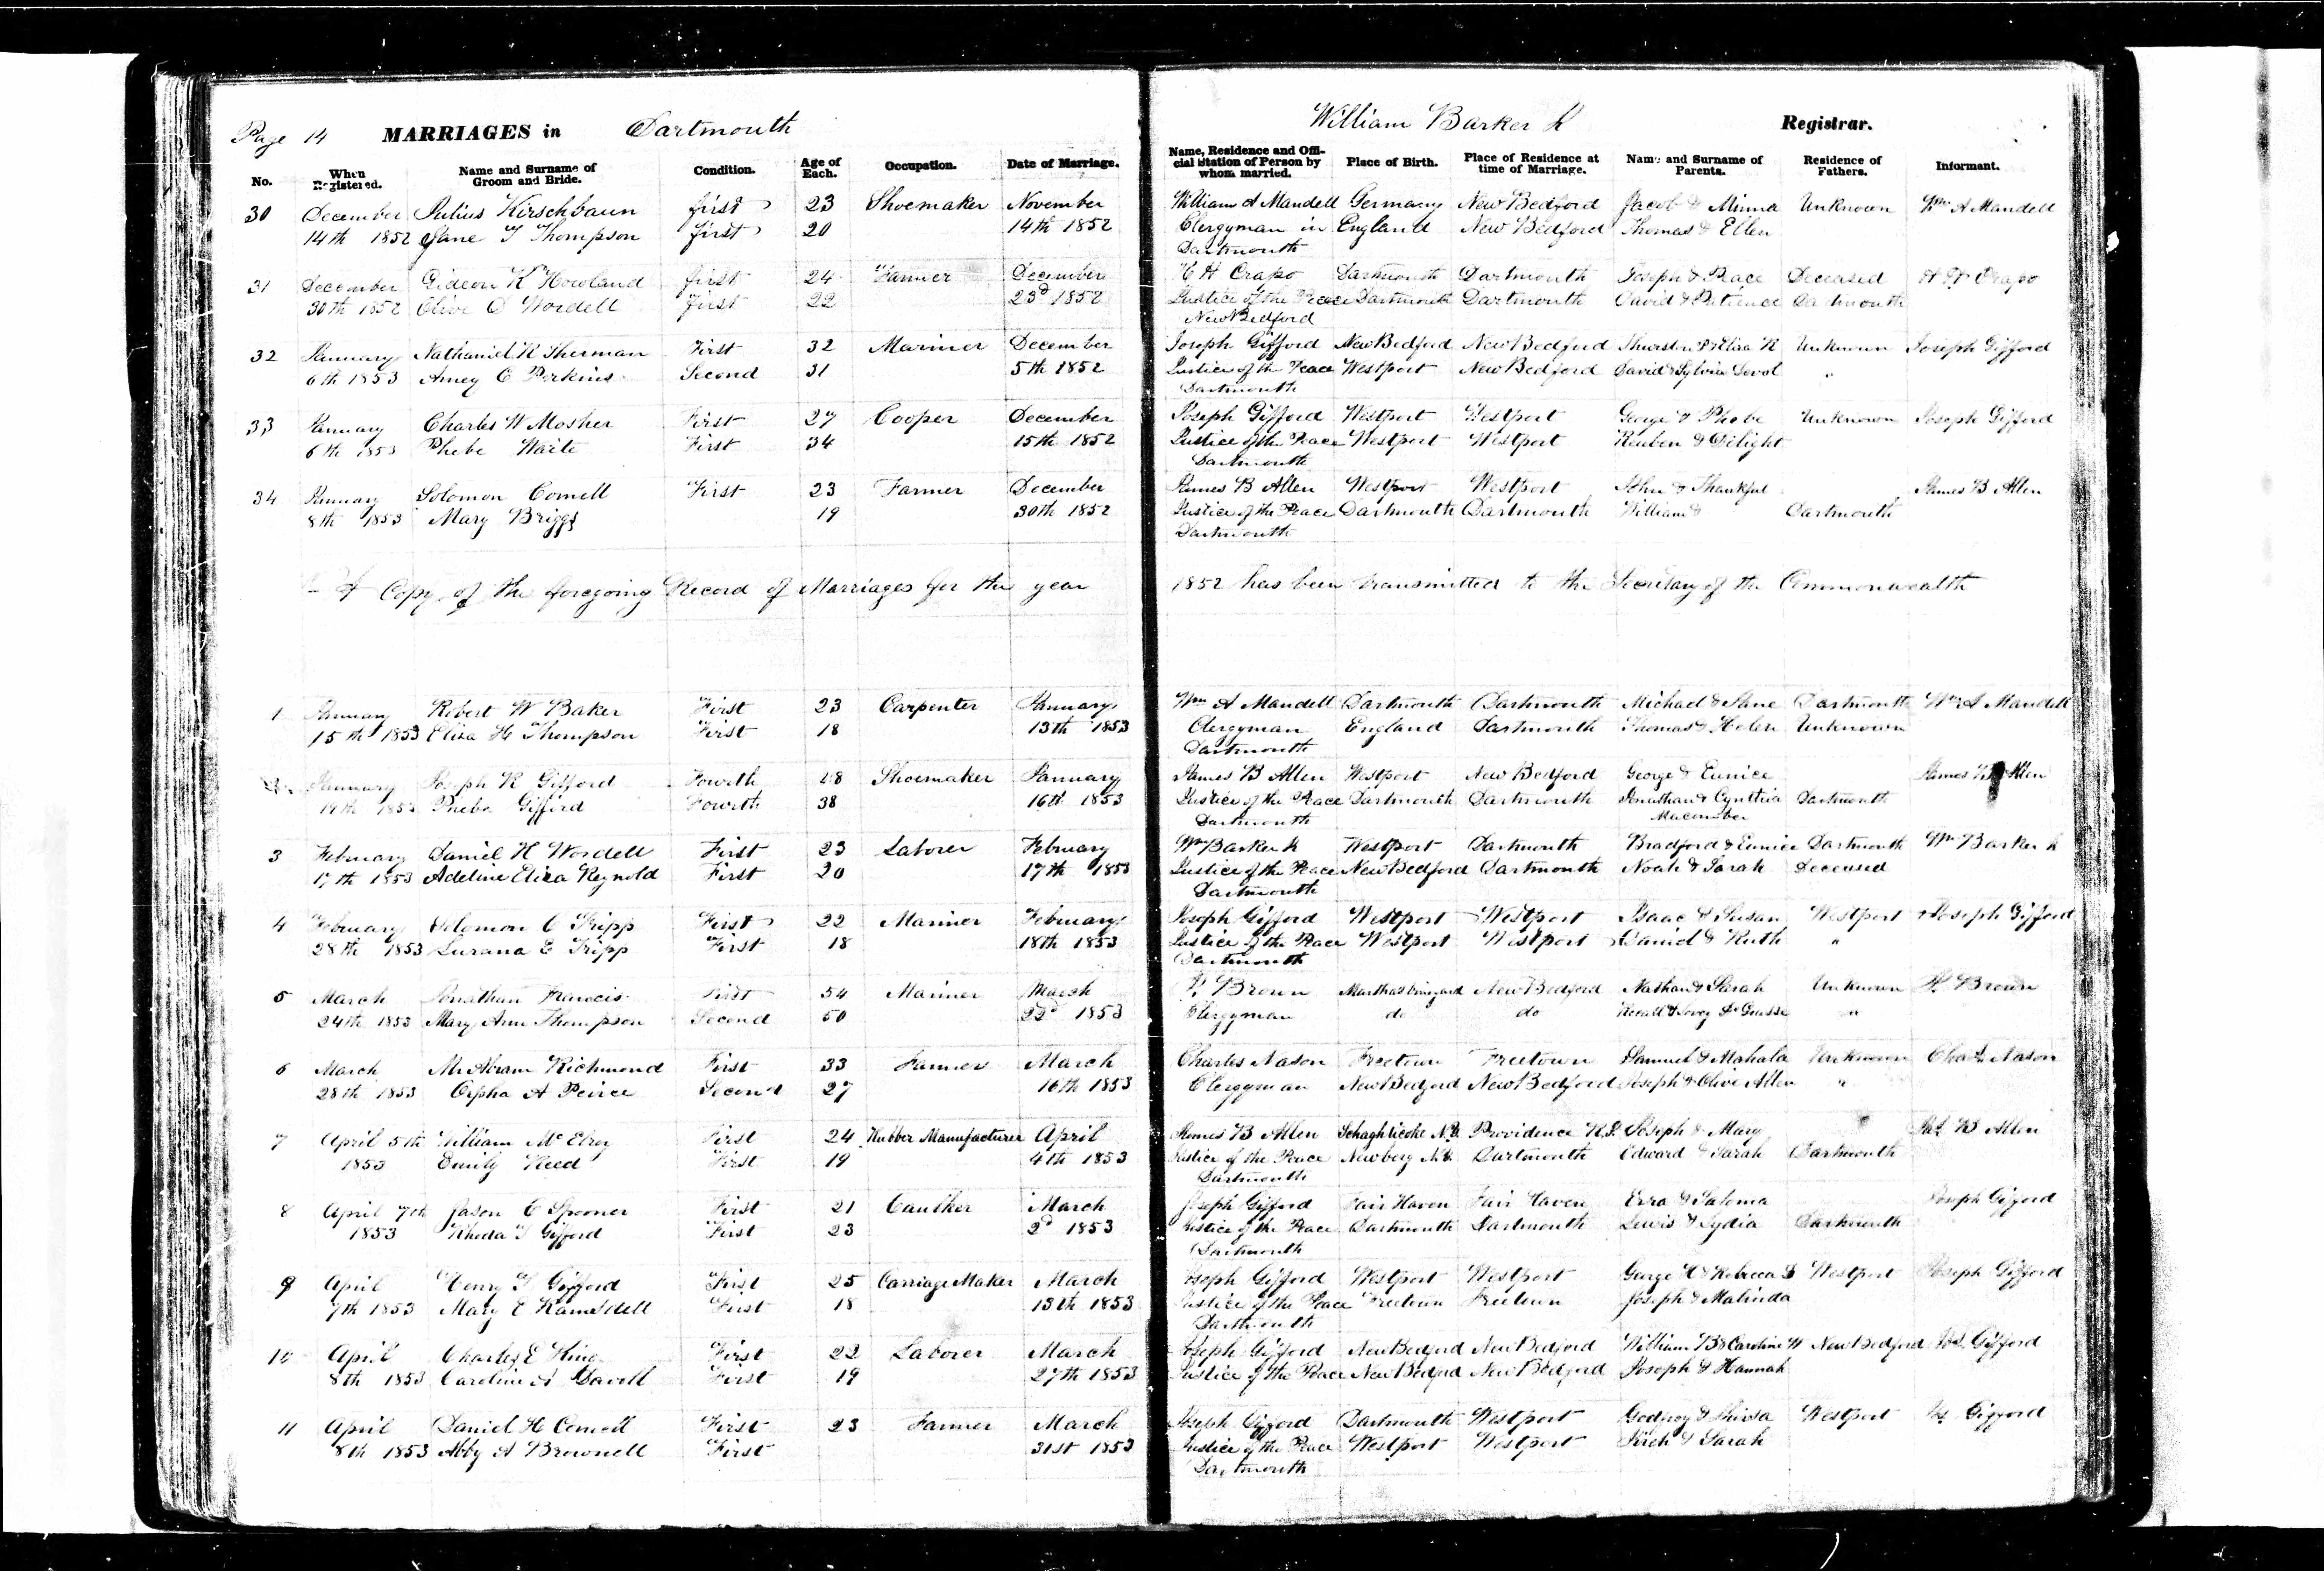 Page 14 MARRIAGES in Dartmouth William Barker Registrar.
No. When Registered. Name and Surname of Groom and Bride. Condition. Age of Each. Occupation. Date of Marriage. Name, Residence and Official Station of Person by whom married. Place of Birth. Place of Residence at time of Marriage. Name and Surname of Parents. Residence of Fathers. Informant.
30 December Julius Kirschbaun first 23 Shoemaker November William A Mandell Germany New Bedford Jacob & Minna Unknown Wm A Mandell
14th 1852 Jane T Thompson first 20 14th 1852 Clergyman in England New Bedford Thomas & Ellen
Dartmouth
31 December Gideon K Howland first 24 Farmer December H H Crapo Dartmouth Dartmouth Joseph & Peace Deceased H H Crapo
30th 1852 Olive D Wordell first 22 23d 1852 Justice of the Peace Dartmouth Dartmouth David & Patience Dartmouth
New Bedford
32 January Nathaniel R Sherman First 32 Mariner December Joseph Gifford New Bedford New Bedford Thurston & Eliza R Unknown Joseph Gifford
6th 1853 Amey C Perkins Second 31 5th 1852 Justice of the Peace Westport New Bedford David & Sylvia Devol "
Dartmouth
33 January Charles W Mosher First 27 Cooper December Joseph Gifford Westport Westport George & Phebe Unknown Joseph Gifford
6th 1853 Phebe Waite First 34 15th 1852 Justice of the Peace Westport Westport Reuben & Delight
Dartmouth
34 January Solomon Cornell First 23 Farmer December James B Allen Westport Westport John & Thankful James B Allen
8th 1853 Mary Briggs 19 30th 1852 Justice of the Peace Dartmouth Dartmouth William & Dartmouth
Dartmouth
A Copy of the foregoing Record of Marriages for the year 1852 has been transmitted to the Secretary of the Commonwealth
1 January Robert W Baker First 23 Carpenter January Wm A Mandell Dartmouth Dartmouth Michael & Jane Dartmouth Wm A Mandell
15th 1853 Eliza H Thompson First 18 13th 1853 Clergyman England Dartmouth Thomas & Helen Unknown
Dartmouth
2 January Joseph R Gifford Fourth 48 Shoemaker January James B Allen Westport New Bedford George & Eunice James B Allen
19th 1853 Pheba Gifford Fourth 38 16th 1853 Justice of the Peace Dartmouth Dartmouth Jonathan & Cynthia Dartmouth
Dartmouth Macomber
3 February Daniel H Wordell First 23 Laborer February Wm Barker Westport Dartmouth Bradford & Eunice Dartmouth Wm Barker
17th 1853 Adeline Eliza Reynold First 20 17th 1853 Justice of the Peace New Bedford Dartmouth Noah & Sarah Deceased
Dartmouth
4 February Solomon C Tripp First 22 Mariner February Joseph Gifford Westport Westport Isaac & Susan Westport Joseph Gifford
28th 1853 Lurana E Tripp First 18 18th 1853 Justice of the Peace Westport Westport Daniel & Ruth "
Dartmouth
5 March Jonathan Francis First 54 Mariner March Brown Marthas Vineyard New Bedford Nathan & Sarah Unknown Brown
24th 1853 Mary Ann Thompson Second 50 22d 1853 Clergyman do do "
6 March Mr Abram Richmond First 33 Farmer March Charles Nason Freetown Freetown Samuel & Mahala Unknown Chas Nason
28th 1853 Orpha A Peirce Second 27 16th 1853 Clergyman New Bedford New Bedford Joseph & Olive Allen "
7 April 5th William McElroy First 24 Rubber Manufacturer April James B Allen Schaghticoke N.Y. Providence R.I. Joseph & Mary Jas B Allen
1853 Emily Reed First 19 4th 1853 Justice of the Peace Newberg N.Y. Dartmouth Edward & Sarah Dartmouth
Dartmouth
8 April 7th Jason C Spooner First 21 Caulker March Joseph Gifford Fair Haven Fair Haven Ezra & Saloma Joseph Gifford
1853 Rhoda T Gifford First 23 2d 1853 Justice of the Peace Dartmouth Dartmouth Lewis & Lydia Dartmouth
Dartmouth
9 April Henry T Gifford First 25 Carriage Maker March Joseph Gifford Westport Westport George H & Rebecca S Westport Joseph Gifford
7th 1853 Mary E Ramsdell First 18 13th 1853 Justice of the Peace Freetown Freetown Joseph & Malinda
Dartmouth
10 April Charles E King First 22 Laborer March Joseph Gifford New Bedford New Bedford William B & Caroline W New Bedford Jos. Gifford
8th 1853 Caroline A Davoll First 19 27th 1853 Justice of the Peace New Bedford New Bedford Joseph & Hannah
11 April Daniel H Cornell First 23 Farmer March Joseph Gifford Dartmouth Westport Godfrey & Westport Jos Gifford
8th 1853 Abby A Brownell First 31st 1853 Justice of the Peace Westport Westport & Sarah
Dartmouth